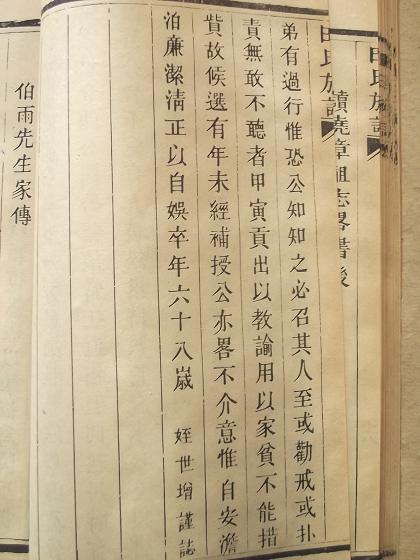 田氏族譜
讀堯章祖志畧書後
田氏族譜
弟有過行惟恐公知知之必召其人至或勸戒或扑
責無敢不聽者甲寅貢出以教諭用以家貧不能措
貲故候選有年未經補授公亦畧不介意惟自安澹
泊廉潔清正以自娛卒年六十八歲 姪世增謹誌
伯雨先生家傳